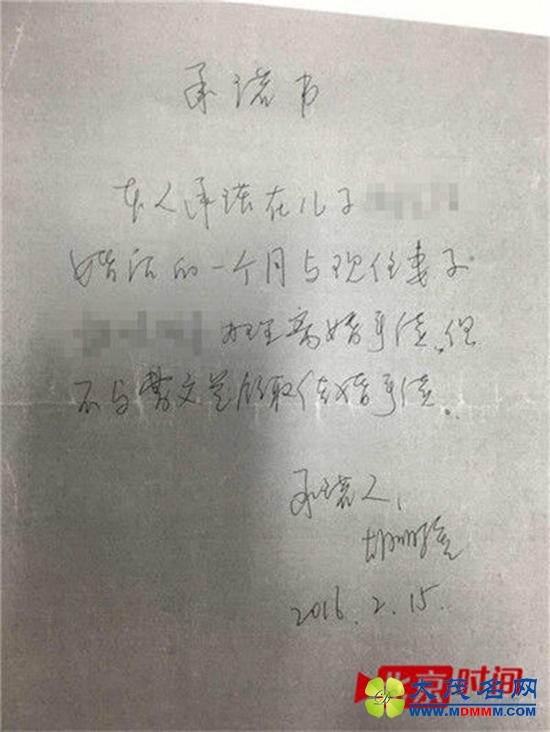 承诺书
本人承诺在儿子
婚后的一个月与现任妻子
办理离婚手续。但
不与曹文兰领取结婚手续。
承诺人:
2016.2.15.
北京时间
大茂名网
WWW.MDMMM.COM